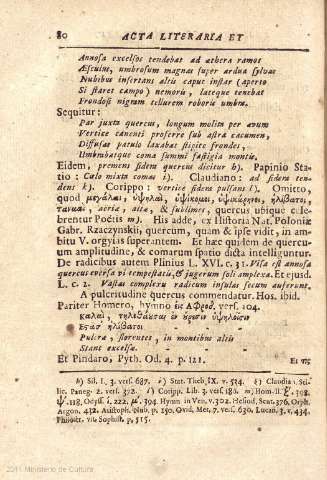 80 ACTA LITERARIA ET
Annosa excelsos tendebat ad æthera ramos
Æsculus, umbrosum magnas super ardua sylvas
Nubibus insertans altis caput instar (aperto
Si staret campo) nemoris, lateque tenebat
Frondosi nigram tellurem roboris umbra.
Sequitur:
Par juxta quercus, longum molita per ævum
Vertice canenti proferre sub astra cacumen,
Diffusas patulo laxabat stipite frondes,
Umbrabatque coma summi fastigia montis.
Eidem, premens sidem quercus dicitur h). Papinio Sta-
tio: Cælo mixta comas i). Claudiano: ad sidera ten-
dens k). Corippo: vertice sidera pulsans l). Omitto,
quod μεγάλαι, ὑψηλαὶ, ὑψίκομοι, ὑψικάρηνοι, ἠλίβατοι,
τανααὶ, aëria, alta, & sublimes, quercus ubique cele-
brentur Poëtis m). His adde, ex Historia Nat. Poloniæ
Gabr. Rzaczynskii, quercum, quam & ipse vidit, in am-
bitu V. orgyias superantem. Et hæc quidem de quercu-
um amplitudine, & comarum spatio dicta intelliguntur.
De radicibus autem Plinius L. XVI. c. 31. Visa est annosa
quercus eversa vi tempestatis, & jugerum soli amplexa. Et ejusd.
L. c. 2. Vastas complexu radicum insulas secum auferunt.
A pulcritudine quercus commendatur. Hos. ibid.
Pariter Homero, hymno εἰς Ἀφροδ. vers. 104.
Καλαὶ, τηλεθάουσαι ἐν ὄυρεσιν ὑψηλοῖσιν
Ἑστᾶσ' ἠλίβατοι
Pulcræ, florentes, in montibus altis
Stant excelsæ.
Et Pindaro, Pyth. Od. 4. p. 121. Ei τις
h) Sil. I. 3. vers. 687. i) Stat. Theb. IX. v. 534. k) Claudian. Sei-
lic. Paneg. 2. vers. 372. l) Coripp. Lib. 3. vers. 180. m) Hom. Il. ξ. 398.
Ψ. 118. Odyss. ι. 222. μ. 394. Hymn. in Ven. v. 302. Hesiod. Scut. 376. Orph.
Argon. 432. Aristoph. Nub. p. 150. Ovid. Met. 7. vers. 630. Lucan. 3. v. 434.
Philostr. vit. Sophist. p. 515.
2011 Ministerio de Cultura